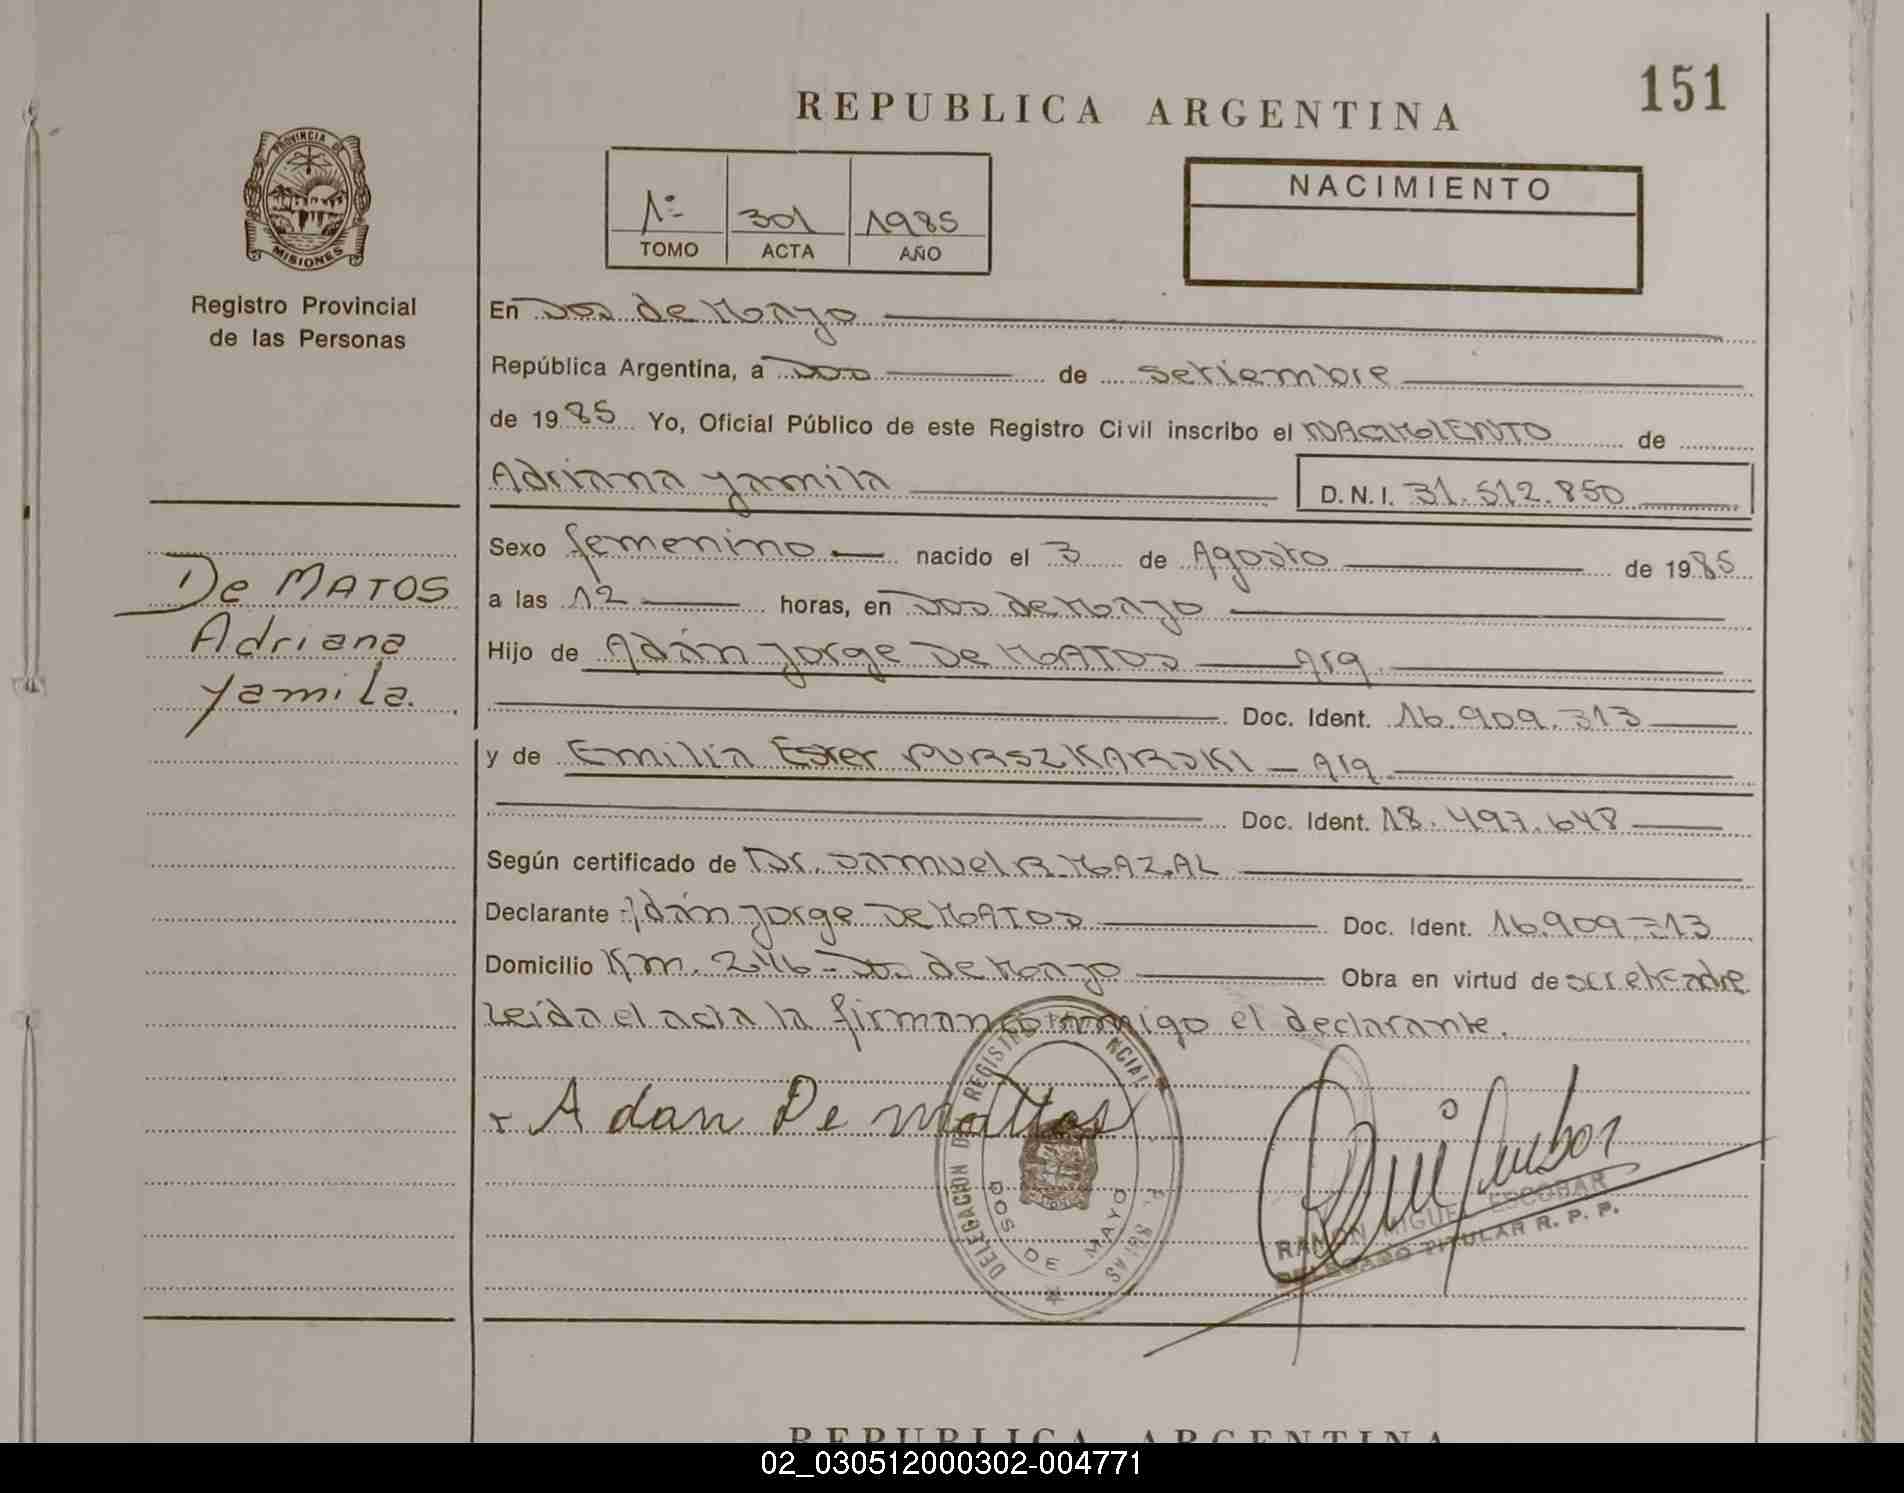 151
REPUBLICA ARGENTINA
PROVINCIA DE
MISIONES
Registro Provincial
de las Personas
1º 301 1985
TOMO ACTA AÑO
NACIMIENTO
En Dos de Mayo
República Argentina, a Dos de setiembre
de 1985 Yo, Oficial Público de este Registro Civil inscribo el NACIMIENTO de
Adriana Yamila D.N.I. 31.512.850
Sexo femenino nacido el 3 de Agosto de 1985
a las 12 horas, en Dos de Mayo
Hijo de Adán Jorge De MATOS Arg.
Doc. Ident. 16.909.313
y de Emilia Ester PURSZKARSKI - Arg.
Doc. Ident. 18.497.648
Según certificado de Dr. Samuel R. MAZAL
Declarante Adán Jorge De MATOS Doc. Ident. 16.909.313
Domicilio Km. 246 - Dos de Mayo Obra en virtud de ser el padre
Leída el acta la firman conmigo el declarante.
De MATOS
Adriana
Yamila.
Adan De mattos
DELEGACION DEL REGISTRO
DOS DE MAYO
RAMON MIGUEL ESCOBAR
DELEGADO TITULAR R. P. P.
REPUBLICA ARGENTINA
02_030512000302-004771